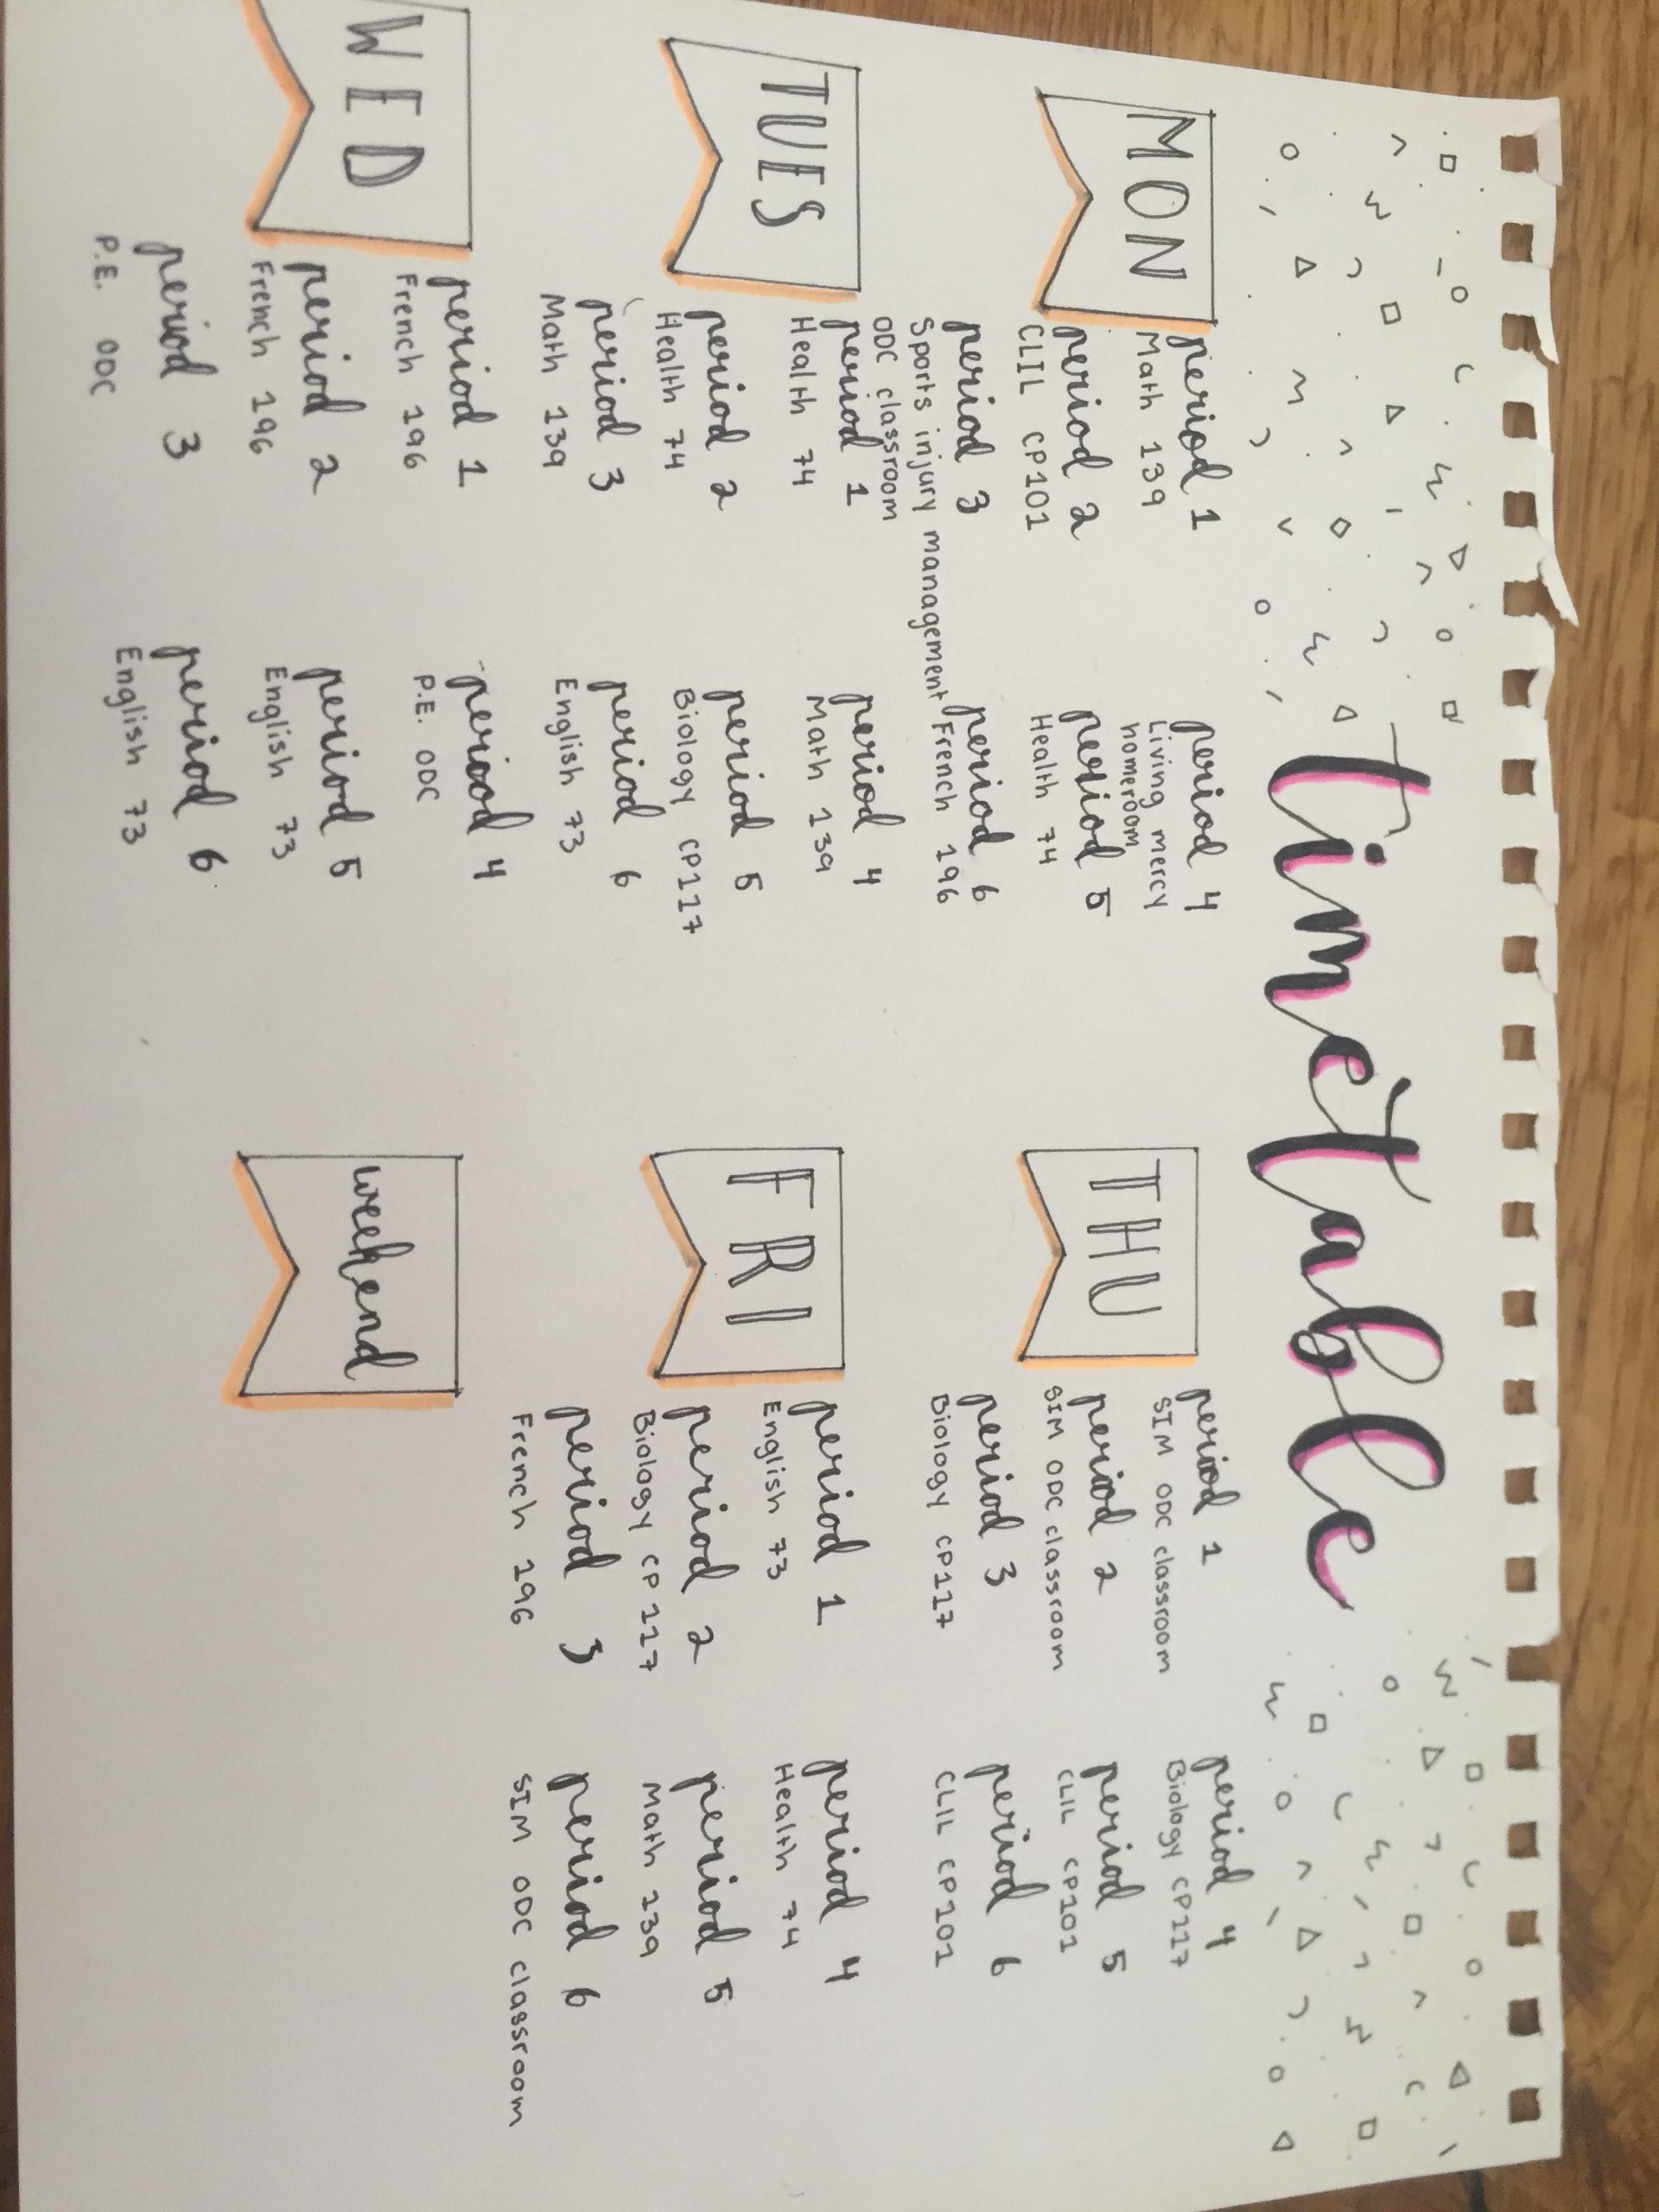 timetable
MON
period 1
Math 139
period 2
CLIL CP101
period 3
Sports injury management
ODC classroom
period 4
Living mercy
homeroom
period 5
Health 74
period 6
French 196
TUES
period 1
Health 74
period 2
Health 74
period 3
Math 139
period 4
Math 139
period 5
Biology CP117
period 6
English 73
WED
period 1
French 196
period 2
French 196
period 3
P.E. ODC
period 4
P.E. ODC
period 5
English 73
period 6
English 73
THU
period 1
SIM ODC classroom
period 2
SIM ODC classroom
period 3
Biology CP117
period 4
Biology CP117
period 5
CLIL CP101
period 6
CLIL CP101
FRI
period 1
English 73
period 2
Biology CP117
period 3
French 196
period 4
Health 74
period 5
Math 139
period 6
SIM ODC classroom
weekend